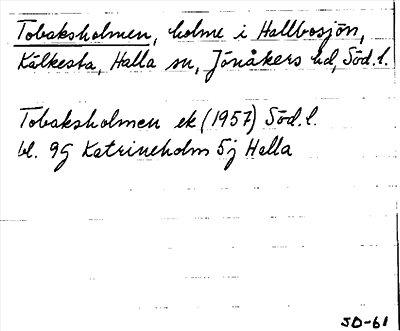 Tobaksholmen, holme i Hallbosjön,
Kälkesta, Halla sn, Jönåkers hd, Söd. l.
Tobaksholmen ek (1957) Söd. l.
bl. 9G Katrineholm 5j Halla
JD-61